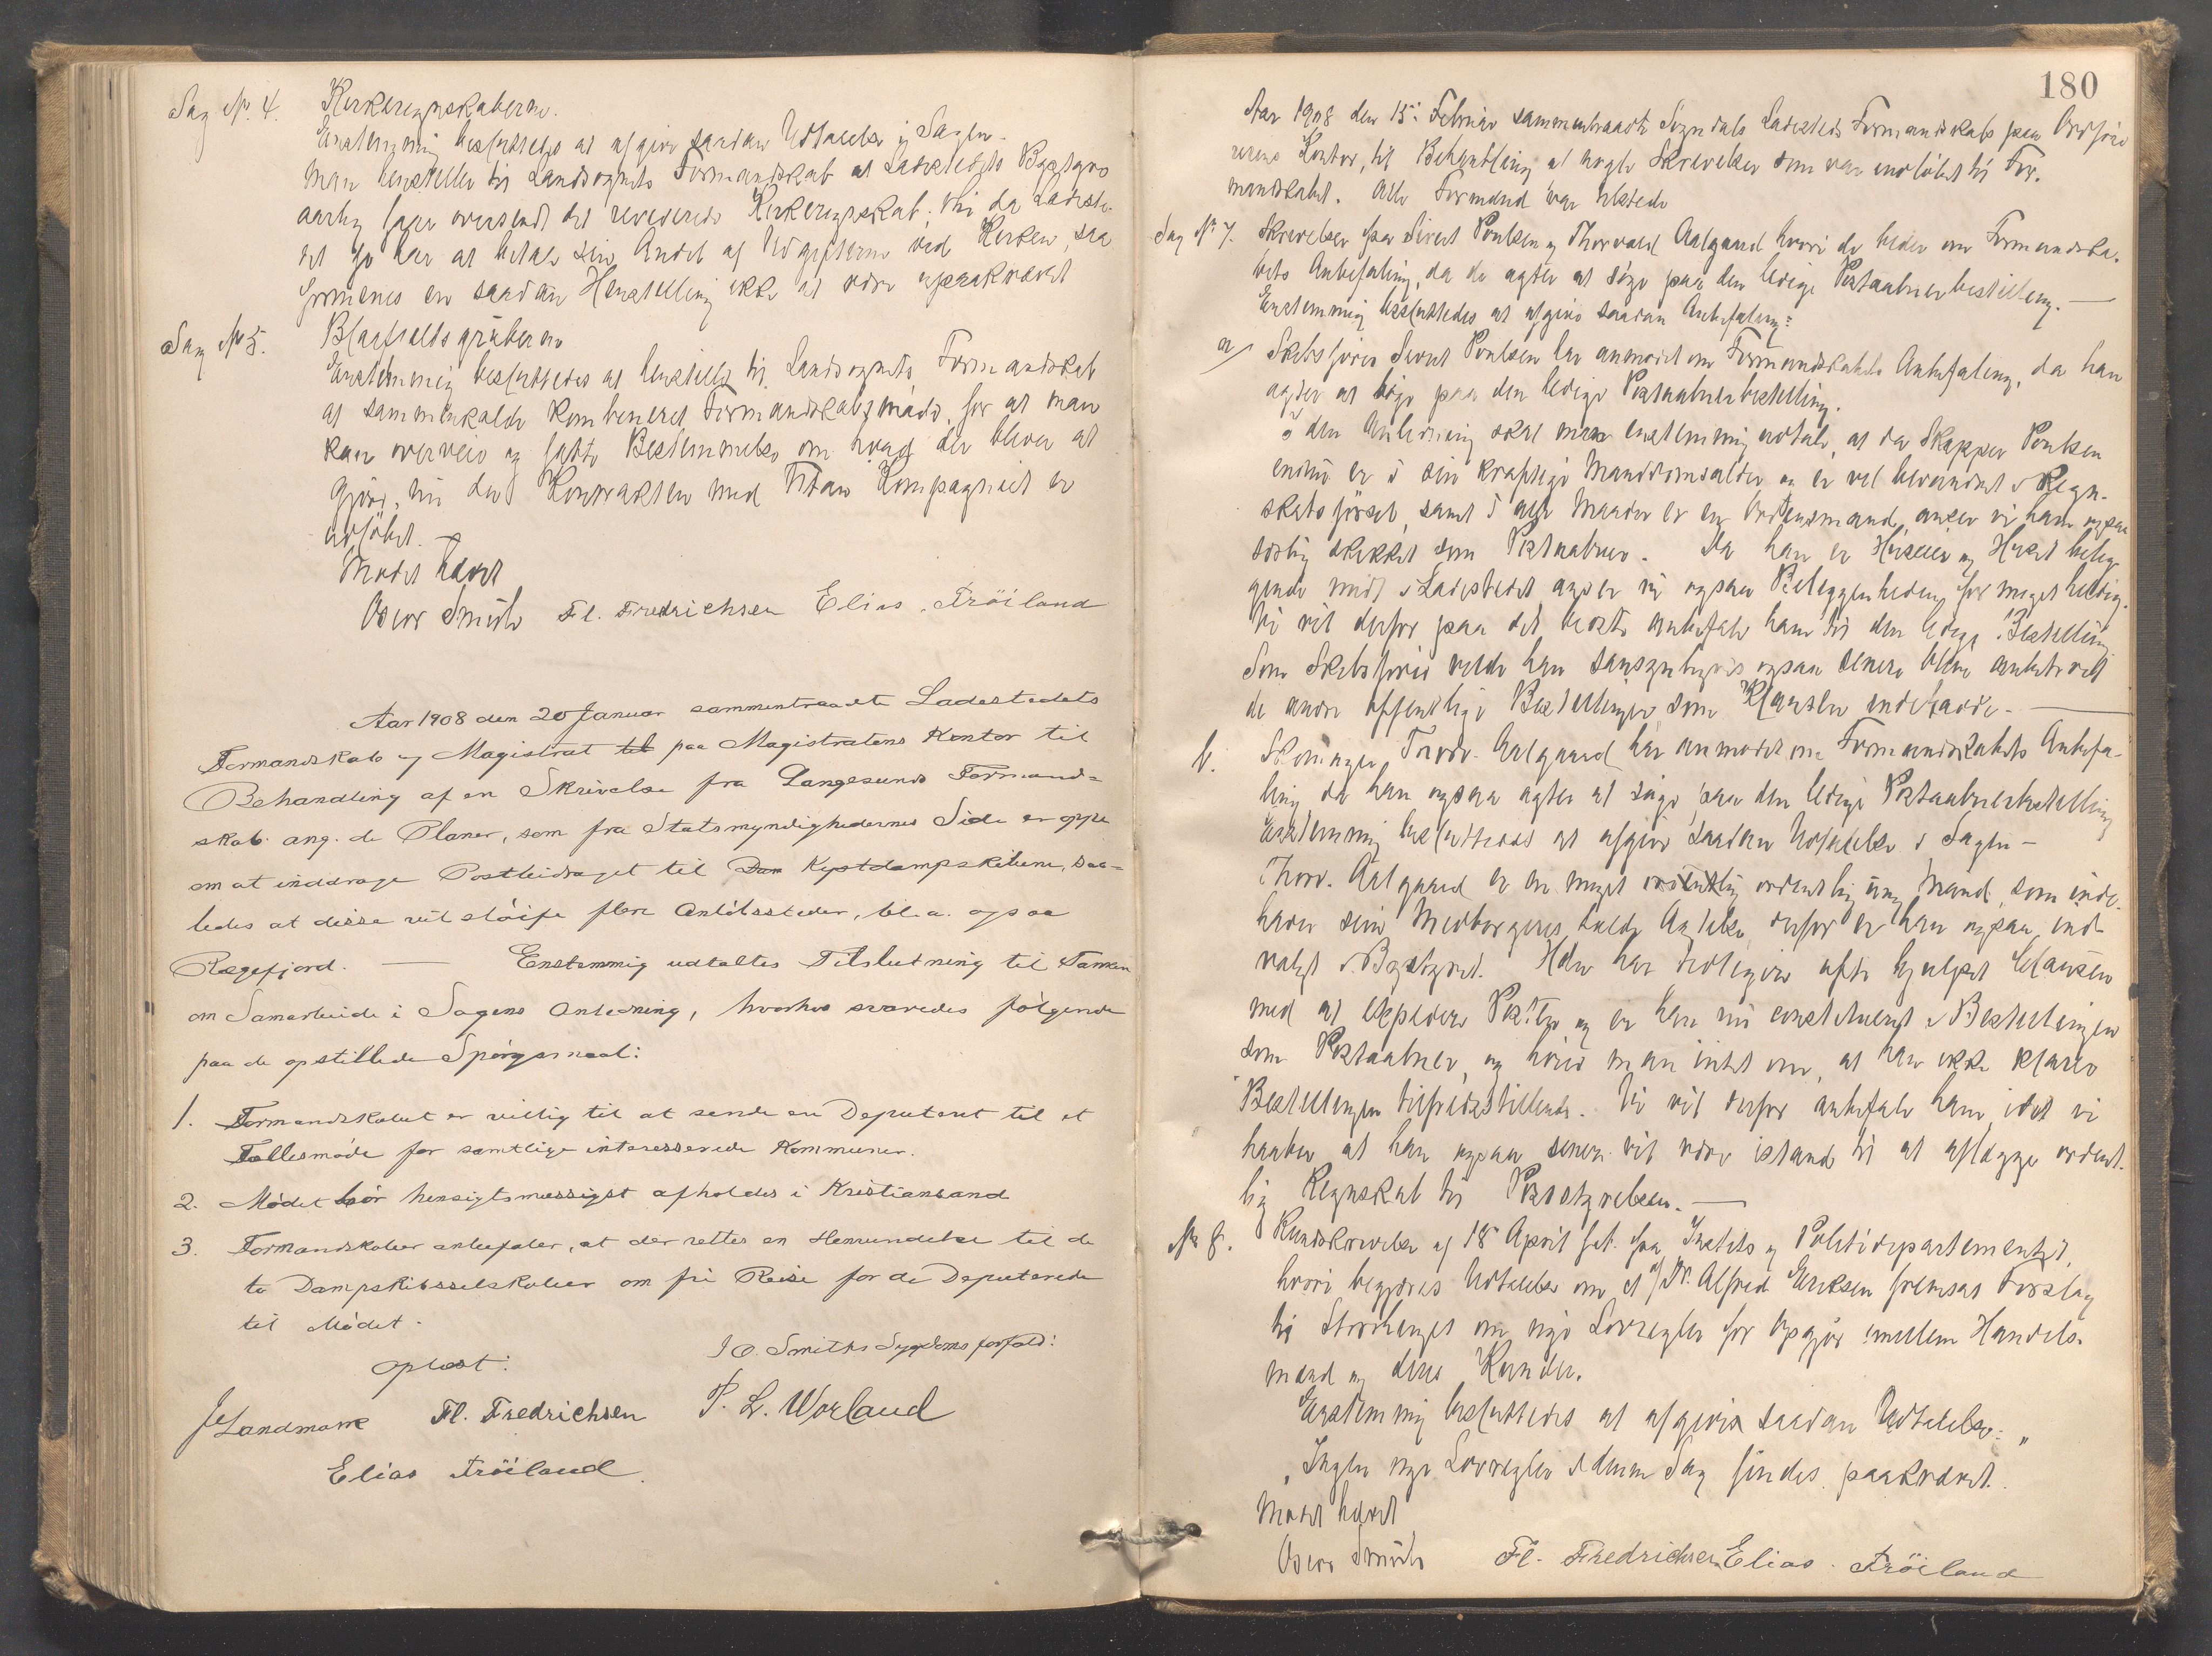 Sag No. 4. Kirkeregnskaberne.
Enstemmig besluttedes at afgive saadan Udtalelse i Sagen.
Man henstiller til Landsognets Formandskab at Ladestedets Bystyre
aarlig faar oversendt det reviderede Kirkeregnskab; thi da Ladeste-
det jo har at betale sin Andel af Udgifterne ved Kirken, saa
formenes en saadan Henstilling ikke at være upaakrævet
Sag No 5. Blaafjeldsgruberne
Enstemmig besluttedes at henstille til Landsognets Formandskab
at sammenkalde kombineret Formandskabsmøde, for at man
kan overveie og fatte Bestemmelse om hvad der bliver at
gjøre, nu da Kontrakten med Titan Kompagniet er
udløbet. —
Mødet hævet
Oscar Smith Fl. Fredrichsen Elias Tröiland
Aar 1908 den 20 Januar sammentraadte Ladestedets
Formandskab og Magistrat til paa Magistratens Kontor til
Behandling af en Skrivelse fra Langesunds Formand-
skab ang. de Planer, som fra Statsmyndighedernes Side er oppe
om at inddrage Postbidraget til Dam Kystdampskibene, saa-
ledes at disse vil sløife flere Anløbssteder, bl. a. ogsaa
Rægefjord. — Enstemmig udtaltes Tilslutning til Tanken
om Samarbeide i Sagens Anledning, hvorhos svaredes følgende
paa de opstillede Spørgsmaal:
1. Formandskabet er villig til at sende en Deputeret til et
Fællesmøde for samtlige interesserede Kommuner.
2. Mødet bør hensigtsmæssigst afholdes i Kristiansand
3. Formandskabet anbefaler, at der rettes en Henvendelse til de
to Dampskibsselskaber om fri Reise for de Deputerede
til Mødet.
Oplæst: I O. Smiths Sygdoms forfald:
Landmark Fl. Fredrichsen P. L. Worland
Elias Tröiland.
180
Aar 1908 den 15: Februar sammentraadte Sogndals Ladesteds Formandskab paa Ordføre
rens Kontor, til Behandling af nogle Skrivelser som var indløbet til For-
mandskabet. Alle Formænd var tilstede
Sag No 7. Skrivelser fra Sivert Poulsen og Thorvald Aalgaard hvori de beder om Formandska-
bets Anbefaling, da de agter at søge paa den ledige Postaabnerbestilling. —
Enstemmig besluttedes at afgive saadan Anbefaling:
a/ Skibsfører Sivert Poulsen har anmodet om Formandskabets Anbefaling, da han
agter at søge paa den ledige Postaabnerbestilling.
I den Anledning skal man enstemmig udtale, at da Skipper Poulsen
endnu er i sin kraftige Manddomsalder og er vel bevandret i Regn-
skabsførsel, samt i alle Maader er en Ordensmand, anser vi ham ogsaa
særlig skikket som Postaabner. Da han er Huseier og Huset belig-
gende midt i Ladestedet anser vi ogsaa Beliggenheden for meget heldig.
Vi vil derfor paa det bedste anbefale ham til den ledige Bestilling
Som Skibsfører vilde han sandsynligvis ogsaa senere blive anbetroet
de andre offentlige Bestillinger som Clausen indehavde. —
b. Thorv. Aalgaard har anmodet om Formandskabets Anbefa-
ling, da han ogsaa agter at søge paa den ledige Postaabnerbestilling
Enstemmig besluttedes at afgive saadan Udtalelse i Sagen —
Thorv. Aalgaard er en meget ordentlig ordentlig ung Mand, som inde-
haver sine Medborgeres fulde Agtelse, derfor er han ogsaa ind-
valgt i Bystyret. Han har tidligere ofte hjulpet Clausen
med at expedere Posten og er han nu constitueret i Bestillingen
som Postaabner, og hører man intet om, at han ikke klarer
Bestillingen tilfredsstillende. Vi vil derfor anbefale ham, idet vi
haaber at han ogsaa senere vil være istand til at aflægge ordent-
lig Regnskab til Poststyrelsen. —
No 8. Rundskrivelse af 18 April f.a. fra Justits og Politidepartementet,
hvori begjæres Udtalelse om et af Dr. Alfred Eriksen fremsat Forslag
til Storthinget om nye Lovregler for Opgjør imellem Handels-
mænd og deres Kunder.
Enstemmig besluttedes at afgive saadan Udtalelse:
"Ingen nye Lovregler i denne Sag findes paakrævet."
Mødet hævet
Oscar Smith Fl. Fredrichsen Elias Tröiland